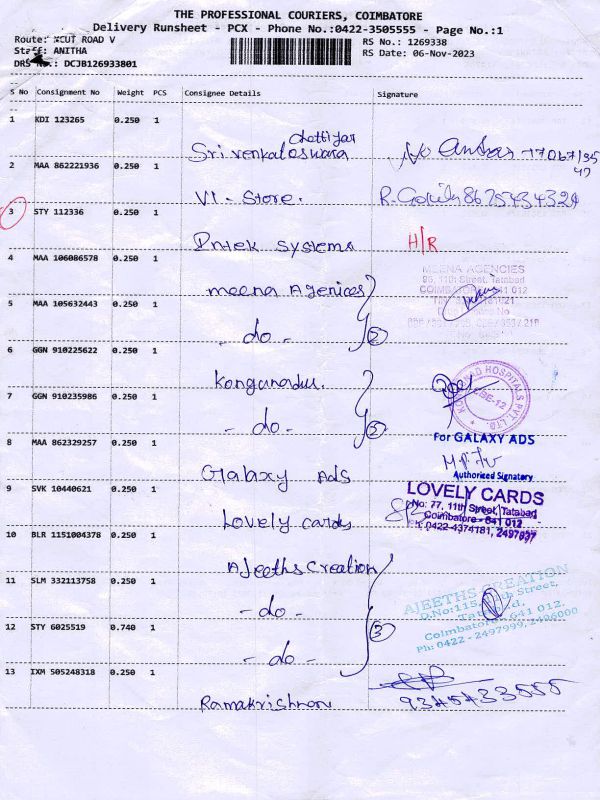 THE PROFESSIONAL COURIERS, COIMBATORE
Delivery Runsheet - PCX - Phone No.:0422-3505555 - Page No.:1
Route: ROAD V
Staff: ANITHA
DRS No.: DCJB126933801
RS No.: 1269338
RS Date: 06-Nov-2023
S No Consignment No Weight PCS Consignee Details Signature
1 KDI 123265 0.250 1
Chettiyar
Sri venkateswara
2 MAA 862221936 0.250 1
VI - Store.
3 STY 112336 0.250 1
Systems H/R
4 MAA 106086578 0.250 1
meena Agenices
MEENA AGENCIES
11th Street, Tatabad
5 MAA 105632443 0.250 1
- do - 2
6 GGN 910225622 0.250 1
Kongunadu.
7 GGN 910235986 0.250 1
- do - 5
HOSPITALS PVT. LTD.
CBE-12
For GALAXY ADS
8 MAA 862329257 0.250 1
Galaxy Ads
Authorised Signatory
9 SVK 10440621 0.250 1
Lovely cards
LOVELY CARDS
No: 77, 11th Street, Tatabad
Coimbatore - 641 012
Ph: 0422-4374181, 2497837
10 BLR 1151004378 0.250 1
Ajeeths Creation
11 SLM 332113758 0.250 1
- do -
AJEETHS CREATION
D.No:115, Street,
Coimbatore - 641 012.
Ph: 0422 - 2497999,
12 STY 6025519 0.740 1
- do - 3
13 IXM 505248318 0.250 1
Ramakrishnan